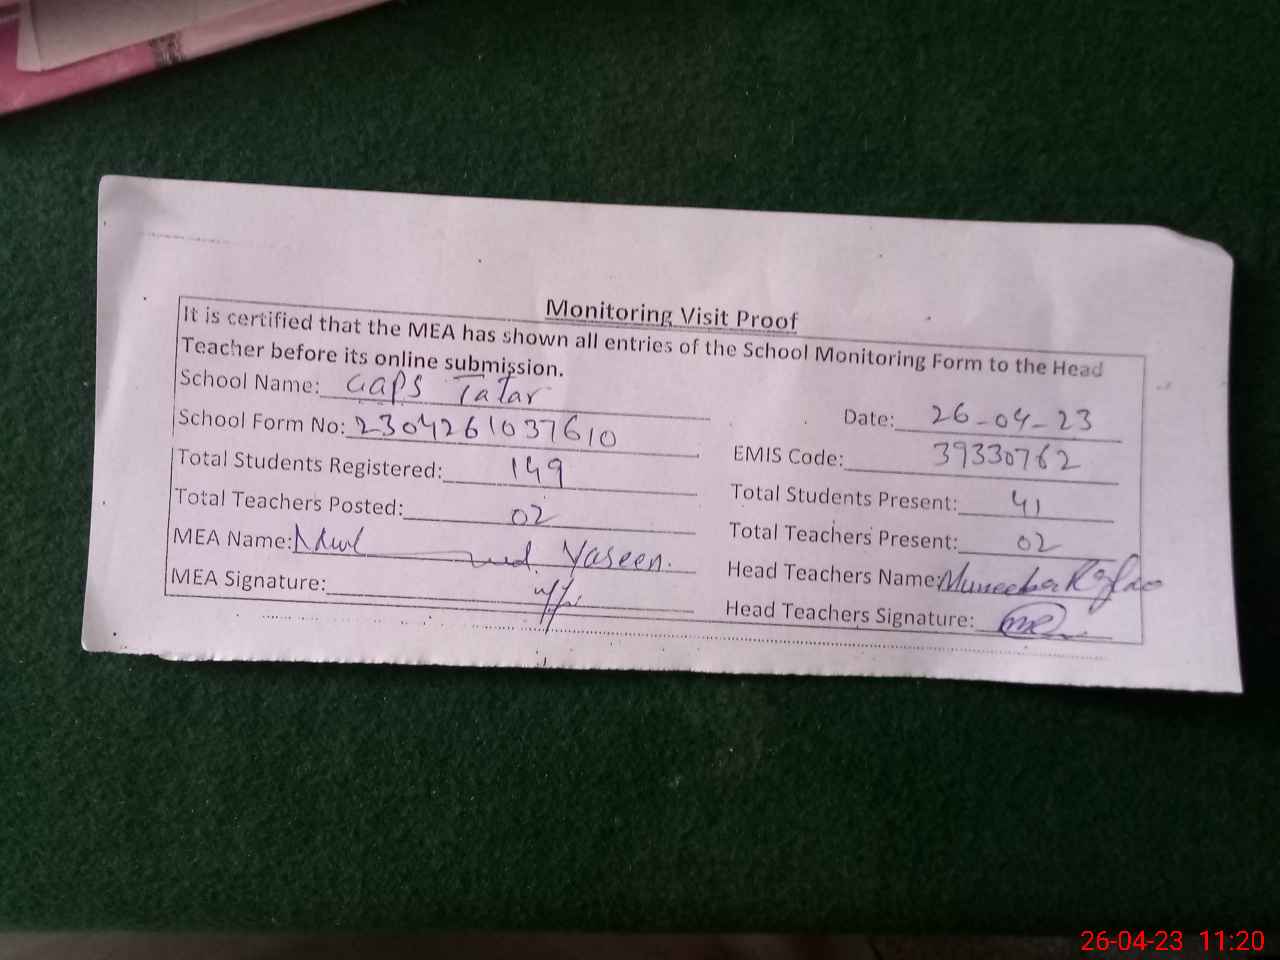 Monitoring Visit Proof
It is certified that the MEA has shown all entries of the School Monitoring Form to the Head
Teacher before its online submission.
School Name: GGPS Tatar
Date: 26-04-23
School Form No: 2304261037610
EMIS Code: 39330762
Total Students Registered: 149
Total Students Present: 41
Total Teachers Posted: 02
Total Teachers Present: 02
MEA Name: Yaseen.
Head Teachers Name: Muneeba
MEA Signature:
Head Teachers Signature:
26-04-23 11:20